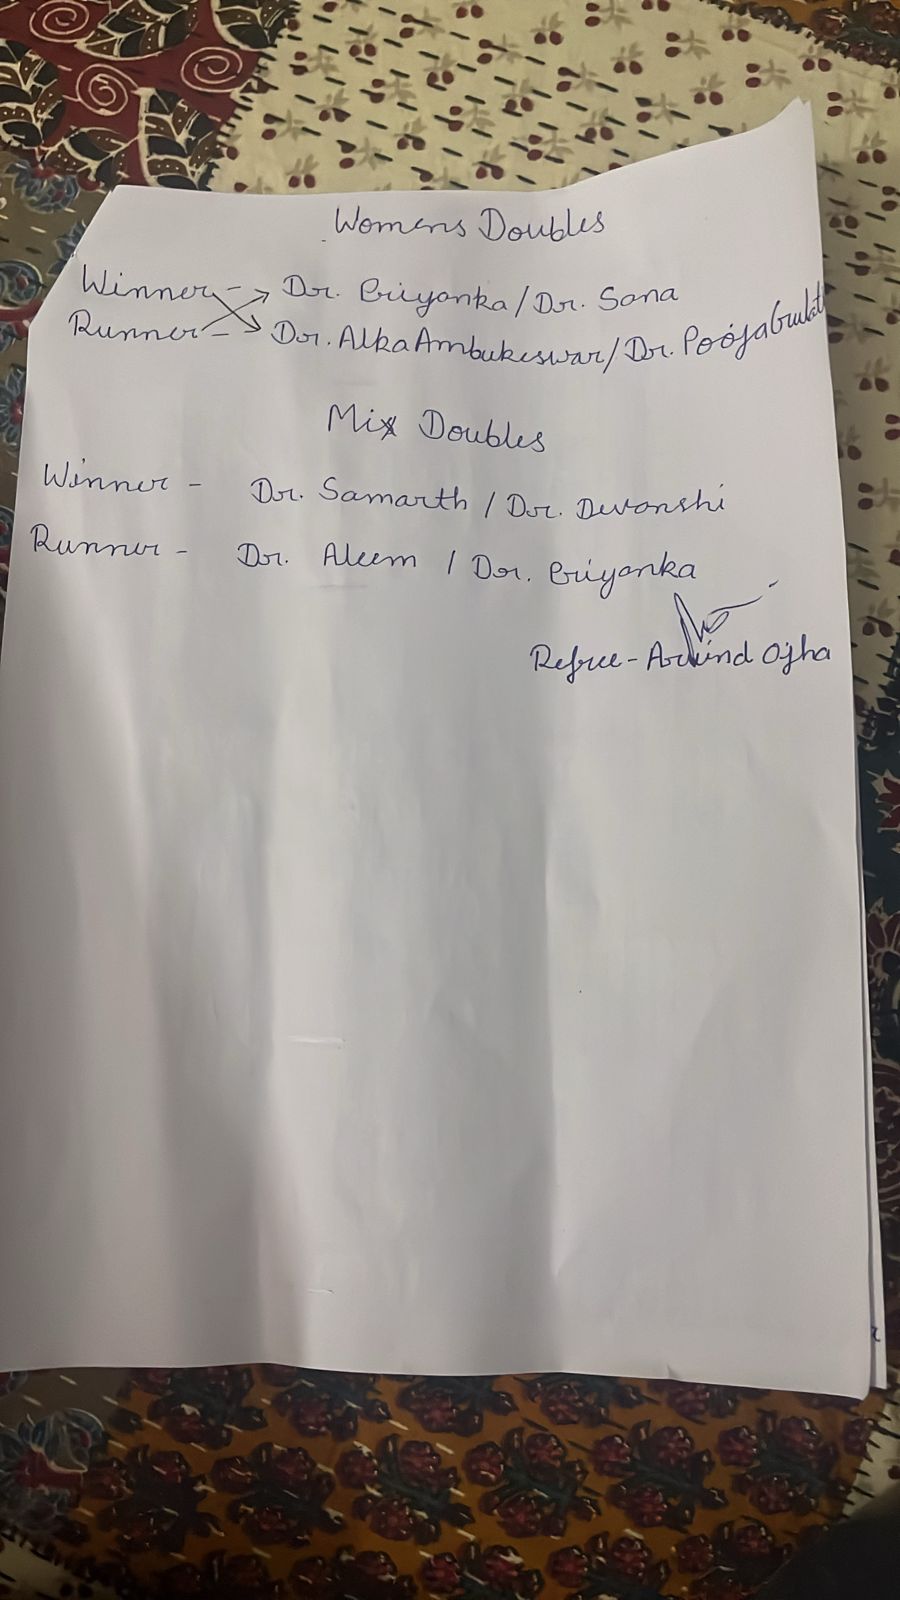 Womens Doubles
Winner - Dr. Priyanka / Dr. Sana
Runner - Dr. Alka Ambukeswar / Dr. Pooja Gulati
Mix Doubles
Winner - Dr. Samarth / Dr. Devanshi
Runner - Dr. Aleem / Dr. Priyanka
Refree - Arvind Ojha